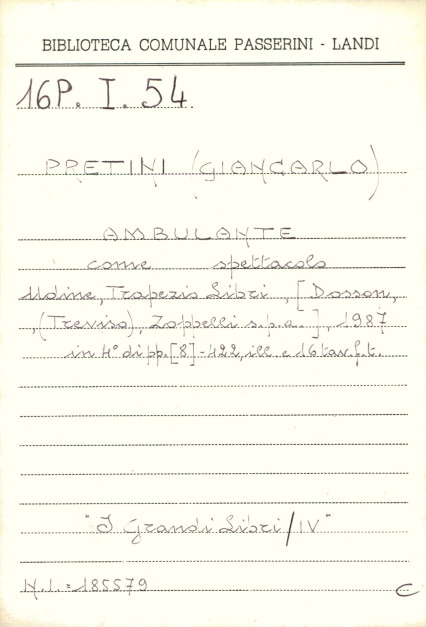 BIBLIOTECA COMUNALE PASSERINI - LANDI
16P. I. 54
PRETINI (GIANCARLO)
AMBULANTE
come spettacolo
Udine, Trapezio Libri, [Dosson,
,(Treviso), Zoppelli s.p.a.], 1987
in 4° di pp. [8]-422, ill. e 16 tav. f. t.
"I Grandi Libri/IV"
N.I. = 185579 C